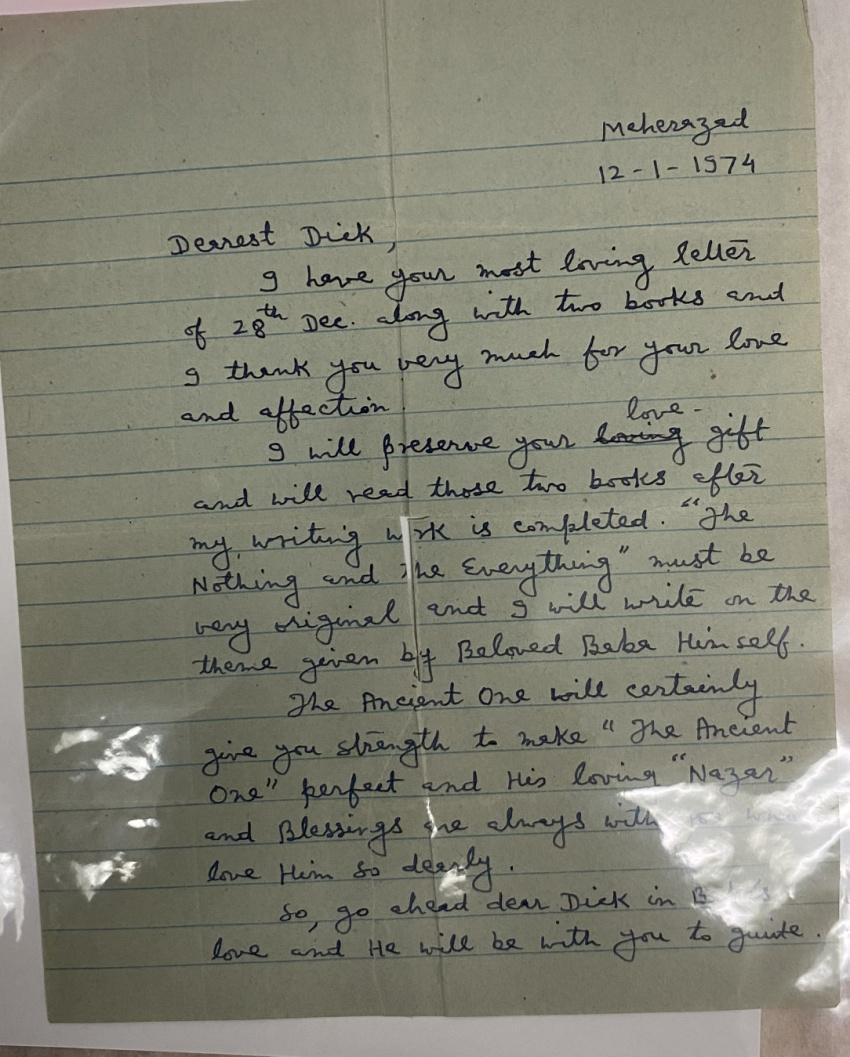 Meherazad
12-1-1974
Dearest Dick,
I have your most loving letter
of 28th Dec. along with two books and
I thank you very much for your love
and affection.
love-
I will preserve your loving gift
and will read those two books after
my writing work is completed. "The
Nothing and the Everything" must be
very original and I will write on the
theme given by Beloved Baba Himself.
The Ancient One will certainly
give you strength to make "The Ancient
One" perfect and His loving "Nazar"
and Blessings are always with who
love Him so dearly.
So, go ahead dear Dick in
love and He will be with you to guide.